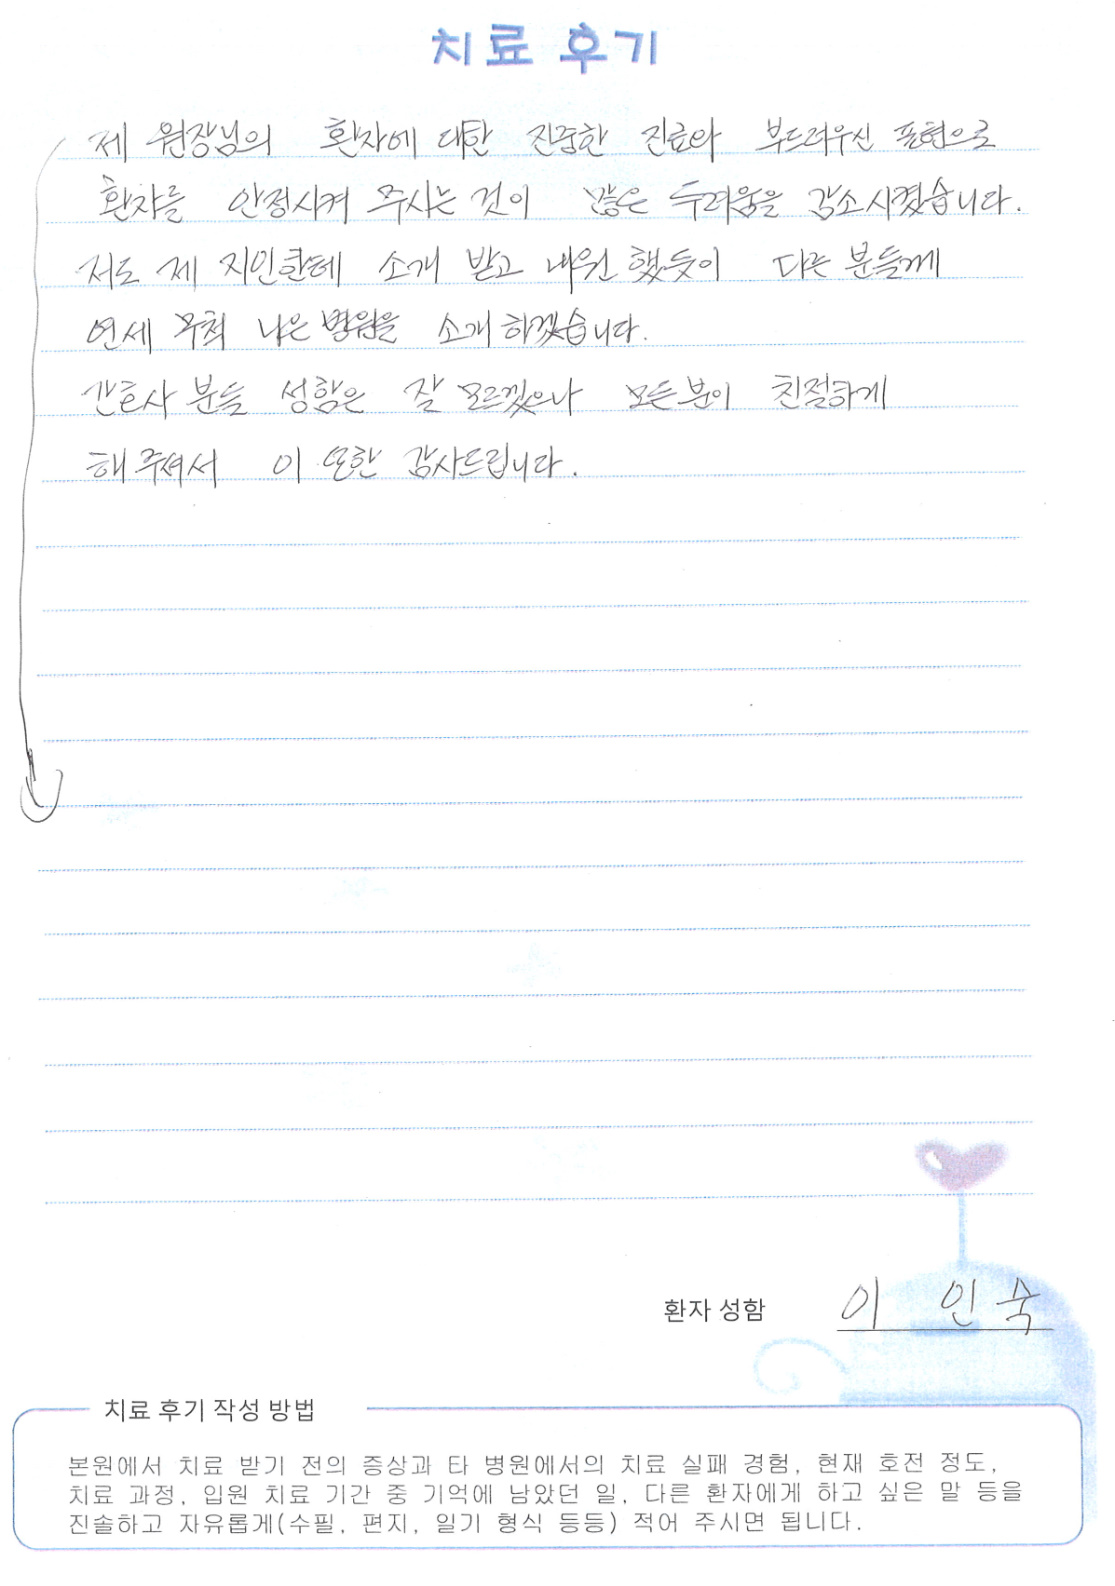 치료 후기
제 원장님의 환자에 대한 진중한 진료와 부드러우신 표현으로
환자를 안정시켜 주시는 것이 많은 두려움을 감소시켰습니다.
저도 제 지인한테 소개 받고 내원 했듯이 다른 분들께
연세 무척 나은 병원을 소개 하겠습니다.
간호사 분들 성함은 잘 모르겠으나 모든분이 친절하게
해 주셔서 이 또한 감사드립니다.
환자 성함 이 인숙
치료 후기 작성 방법
본원에서 치료 받기 전의 증상과 타 병원에서의 치료 실패 경험, 현재 호전 정도,
치료 과정, 입원 치료 기간 중 기억에 남았던 일, 다른 환자에게 하고 싶은 말 등을
진솔하고 자유롭게(수필, 편지, 일기 형식 등등) 적어 주시면 됩니다.